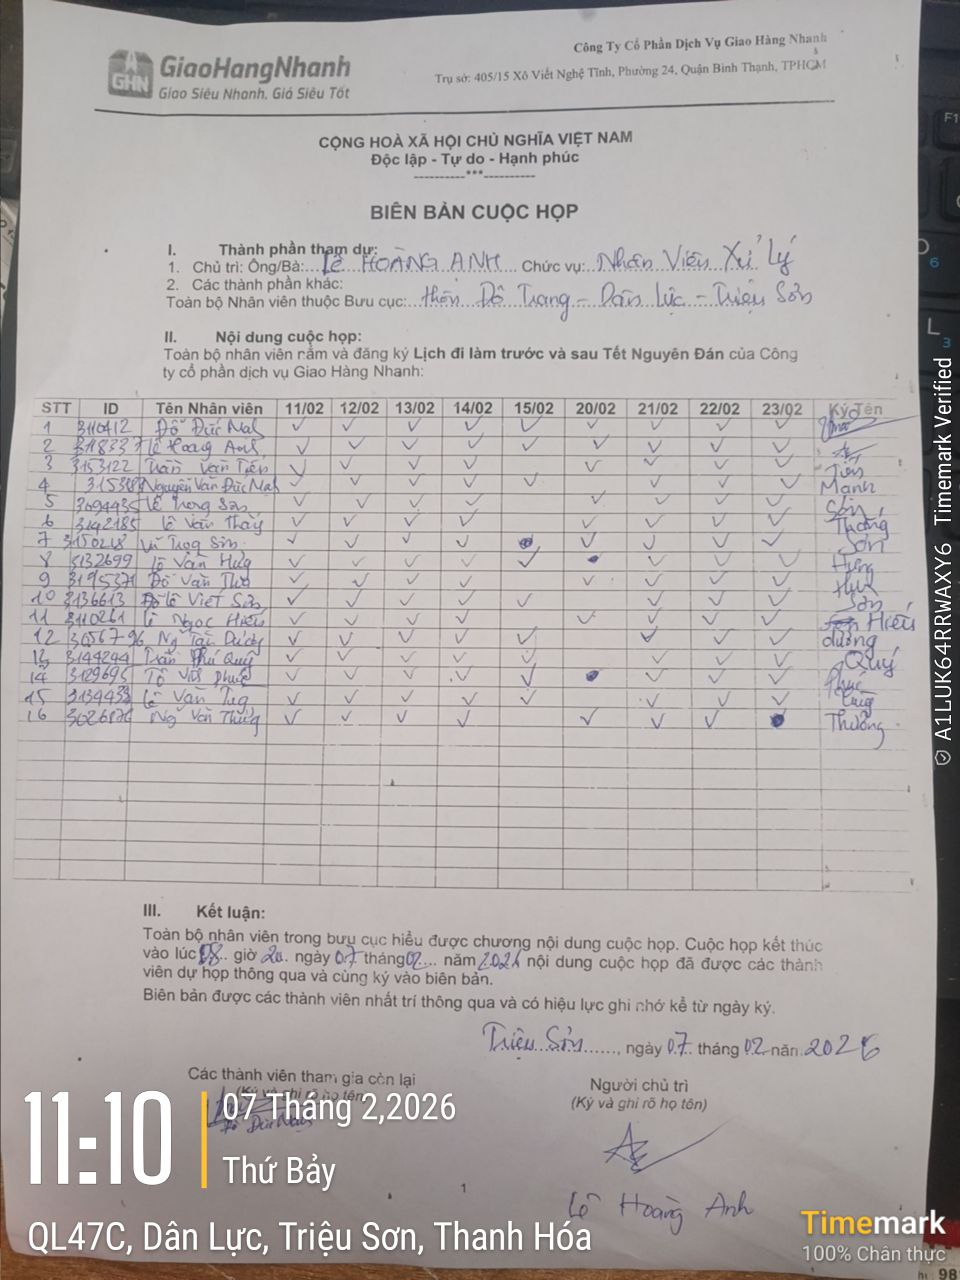 GHN
GiaoHangNhanh
Giao Siêu Nhanh. Giá Siêu Tốt
Công Ty Cổ Phần Dịch Vụ Giao Hàng Nhanh
Trụ sở: 405/15 Xô Viết Nghệ Tĩnh, Phường 24, Quận Bình Thạnh, TPHCM
CỘNG HOÀ XÃ HỘI CHỦ NGHĨA VIỆT NAM
Độc lập - Tự do - Hạnh phúc
----------***----------
BIÊN BẢN CUỘC HỌP
I. Thành phần tham dự:
1. Chủ trì: Ông/Bà: LÊ HOÀNG ANH Chức vụ: Nhân Viên Xử Lý
2. Các thành phần khác:
Toàn bộ Nhân viên thuộc Bưu cục: thôn Đô Trang - Dân Lực - Triệu Sơn
II. Nội dung cuộc họp:
Toàn bộ nhân viên nắm và đăng ký Lịch đi làm trước và sau Tết Nguyên Đán của Công
ty cổ phần dịch vụ Giao Hàng Nhanh:
STT ID Tên Nhân viên 11/02 12/02 13/02 14/02 15/02 20/02 21/02 22/02 23/02 Ký Tên
1 3110412 Đỗ Đức ✓ ✓ ✓ ✓ ✓ ✓ ✓ ✓ ✓
2 Lê Hoàng Anh ✓ ✓ ✓ ✓ ✓ ✓ ✓ ✓ ✓
3 3153122 Trần Văn Tiến ✓ ✓ ✓ ✓ ✓ ✓ ✓ ✓ Tiến
4 Nguyễn Văn Đức ✓ ✓ ✓ ✓ ✓ ✓ ✓ ✓ ✓ Mạnh
5 3094935 Lê Trọng Sơn ✓ ✓ ✓ ✓ ✓ ✓ ✓ ✓ Sơn
6 3142185 Lê Văn ✓ ✓ ✓ ✓ ✓ ✓ ✓ ✓ Thắng
7 Trọng Sơn ✓ ✓ ✓ ✓ ✓ ✓ ✓ ✓ Sơn
8 3132699 Văn Hưng ✓ ✓ ✓ ✓ ✓ ✓ ✓ ✓ Hưng
9 Đỗ Văn ✓ ✓ ✓ ✓ ✓ ✓ ✓ ✓
10 3136613 Đỗ Lê Viết Sơn ✓ ✓ ✓ ✓ ✓ ✓ ✓ ✓ Sơn
11 3110261 Lê Ngọc Hiếu ✓ ✓ ✓ ✓ ✓ ✓ ✓ ✓ Hiếu
12 Dương ✓ ✓ ✓ ✓ ✓ ✓ ✓ ✓ dương
13 3144244 Trần Phú Quý ✓ ✓ ✓ ✓ ✓ ✓ ✓ ✓ Quý
14 3129695 ✓ ✓ ✓ ✓ ✓ ✓ ✓ ✓
15 Lê Văn ✓ ✓ ✓ ✓ ✓ ✓ ✓ ✓
16 Ng Văn ✓ ✓ ✓ ✓ ✓ ✓ ✓ Thưởng
III. Kết luận:
Toàn bộ nhân viên trong bưu cục hiểu được chương nội dung cuộc họp. Cuộc họp kết thúc
vào lúc 08 giờ 20 ngày 07 tháng 02 năm 2026 nội dung cuộc họp đã được các thành
viên dự họp thông qua và cùng ký vào biên bản.
Biên bản được các thành viên nhất trí thông qua và có hiệu lực ghi nhớ kể từ ngày ký.
Triệu Sơn, ngày 07 tháng 02 năm 2026
Các thành viên tham gia còn lại
(Ký và ghi rõ họ tên)
Người chủ trì
(Ký và ghi rõ họ tên)
Lê Hoàng Anh
1
11:10
07 Tháng 2,2026
Thứ Bảy
QL47C, Dân Lực, Triệu Sơn, Thanh Hóa
Timemark
100% Chân thực
A1LUK64RRWAXY6 Timemark Verified